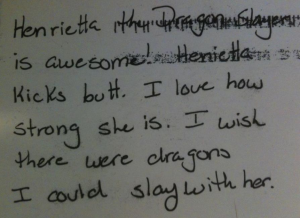 Henrietta the Dragon Slayer
is awesome! Henrietta
kicks butt. I love how
strong she is. I wish
there were dragons
I could slay with her.